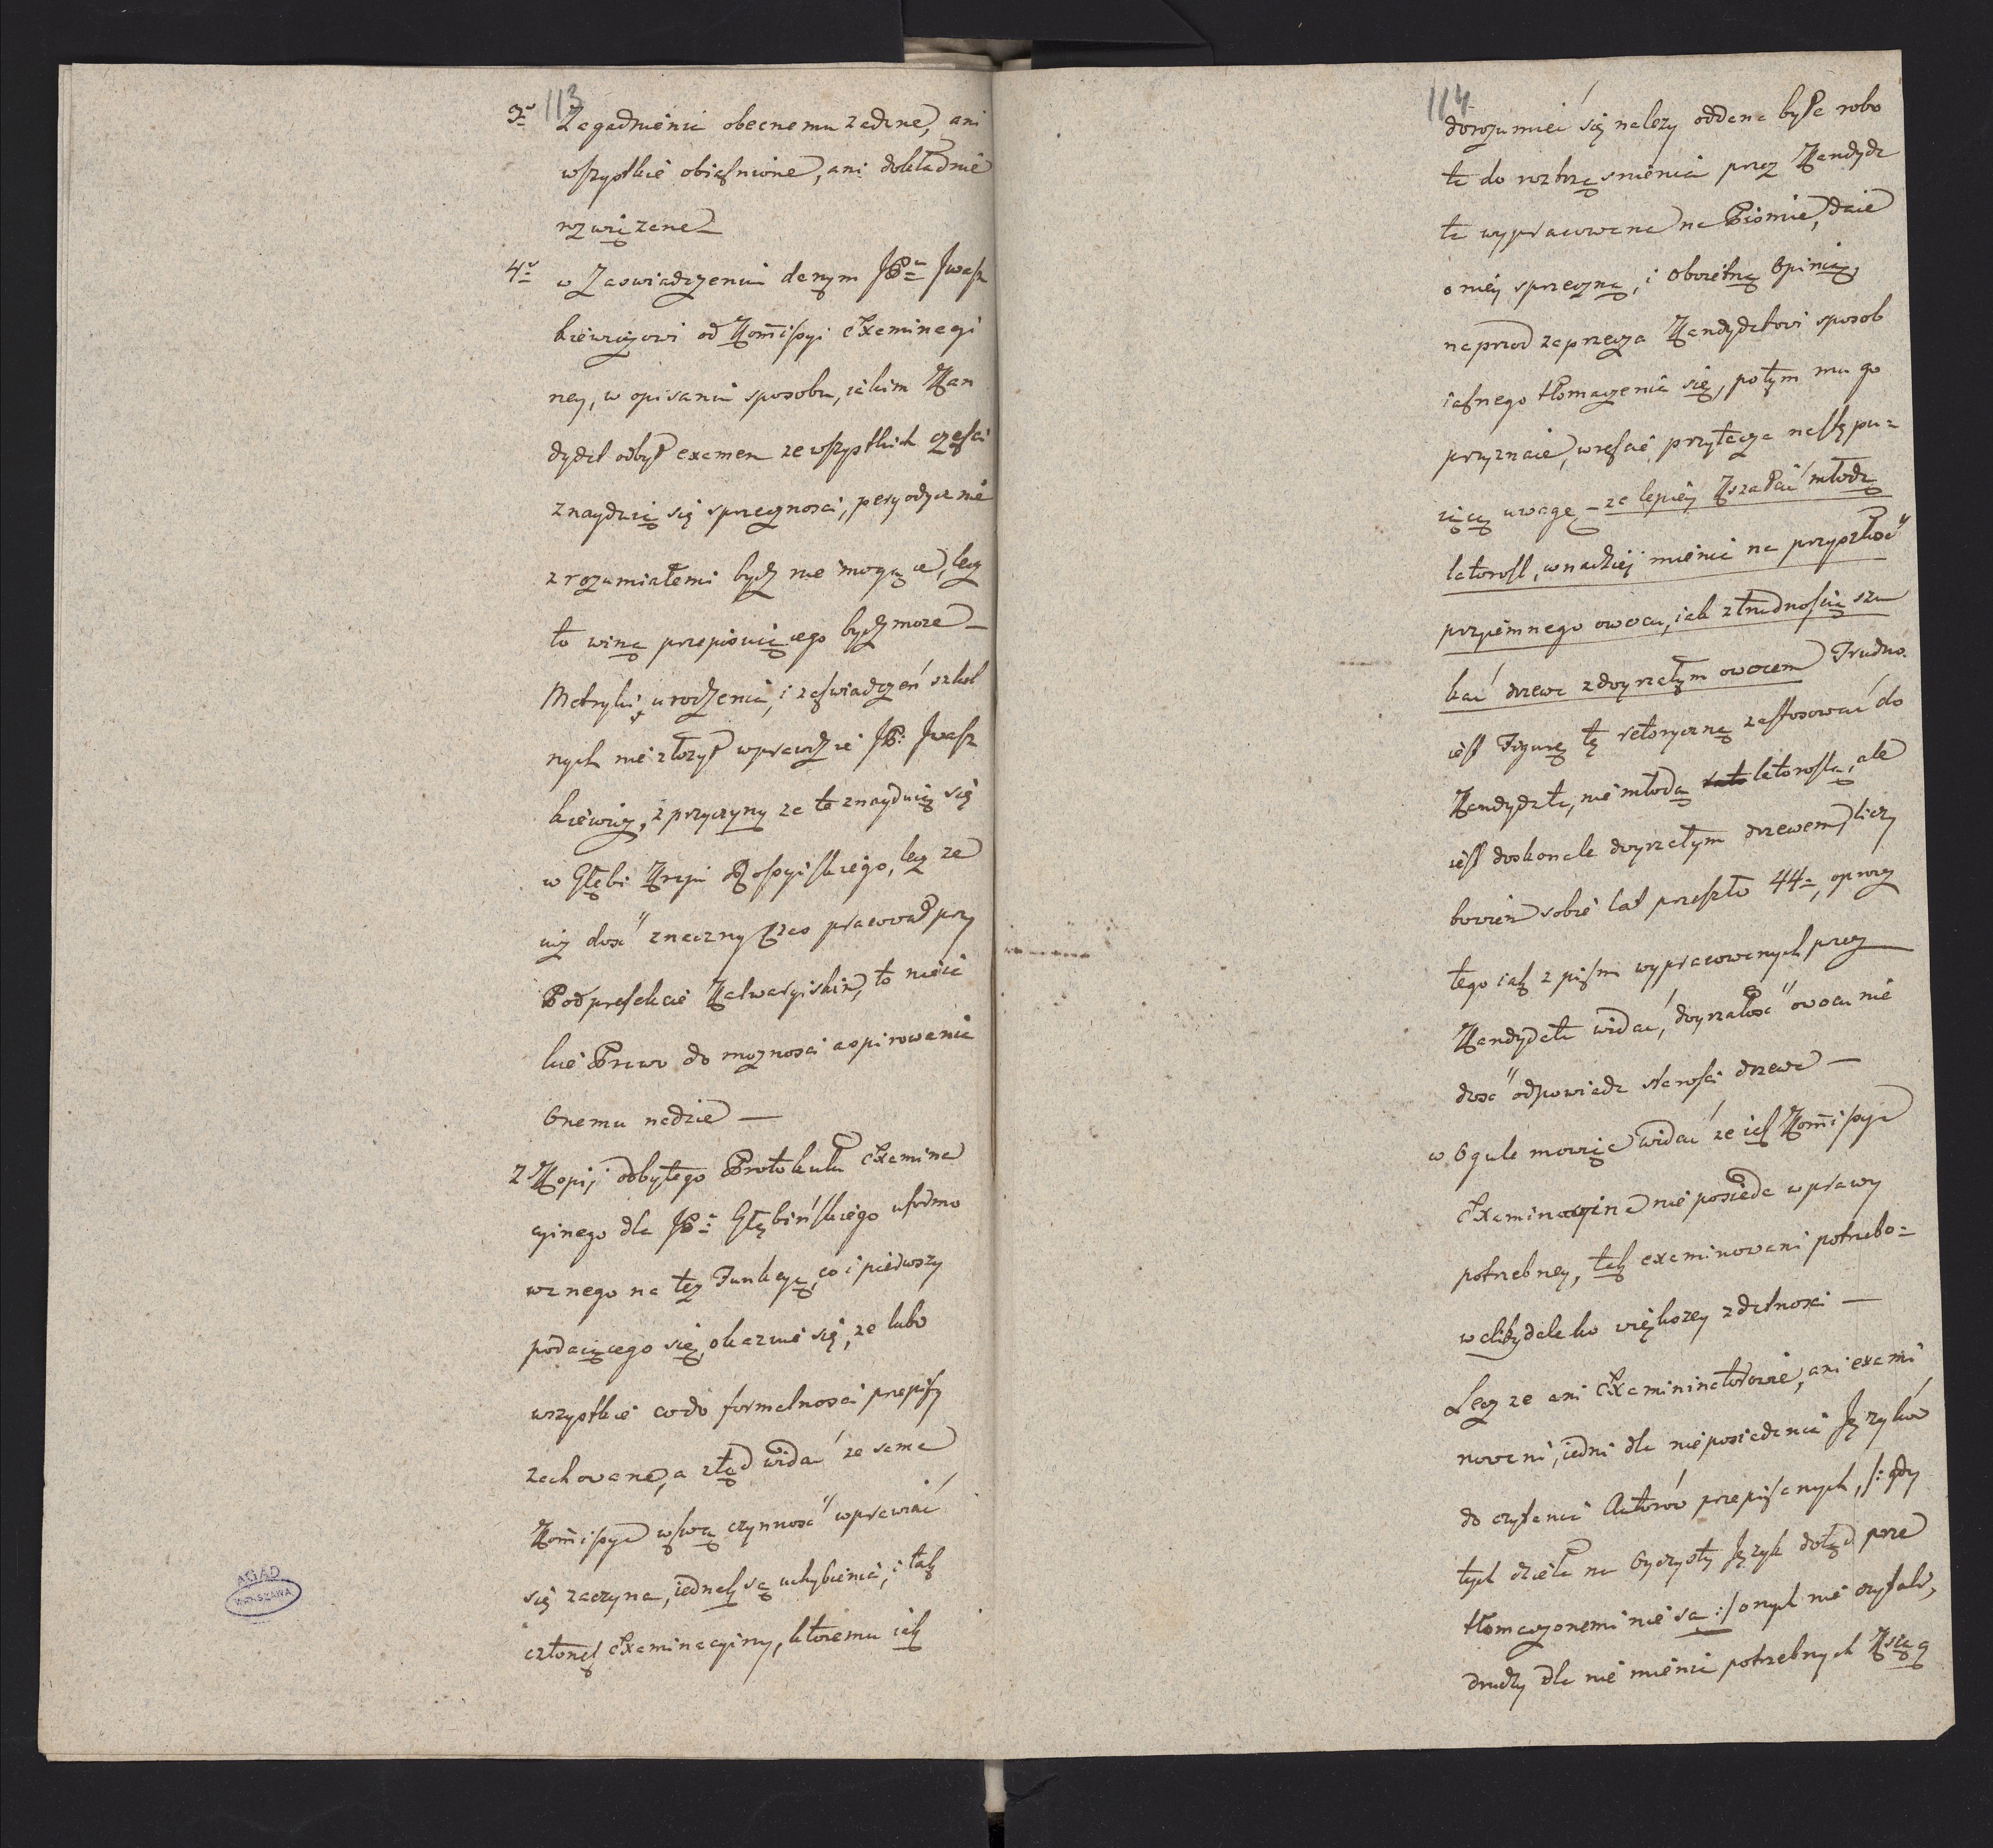 113
3o Zagadnienia obecnemu zadane, ani
wszystkie obiaśnione, ani dokładnie
rozwiązane —
4o w Zaswiadczeniu danym JPu Jwasz
kiewiczowi od Kommissyi Examinacyi
ney, w opisaniu sposobu, iakim Kan
dydat odbył examen ze wszystkich części
znayduią się sprzecznosci, peryodycznie
zrozumiałemi bydź nie mogące, lecz
to winą przepisuiącego bydź moze —
Metryki urodzenia, i zaświadczeń szkol
nych nie złozył wprawdzie JP: Jwasz
kiewicz, z przyczyny ze te znayduią się
w Głębi Kraju Rossyiskiego, lecz ze
iuż dosć znaczny Czas pracował przy
Podprefekcie Kalwaryiskim, to nieia
kie Prawo do mozności aspirowania
Onemu nadaie —
2 Kopij odbytego Protokułu Examina
cyinego dla JPa Głębińskiego uformo
wanego na tęż Funkcyą, co i pierwszy
podaiącego się, okazuie się, ze lubo
wszystkie co do formalnosci przepisy
zachowane, a ztąd widać ze sama
Kommissya w swą czynność wprawiać
się zaczyna, iednak są uchybienia, i tak
członek Examinacyiny, ktoremu iak
AGAD
WARSZAWA
114
dorozumieć się nalezy oddana była robo
ta do roztrząsnienia przez Kandyda
ta wypracowana na Piśmie, daie
o niey sprzeczną, i Oboiętną Opinią,
naprzod zaprzecza Kandydatowi sposob
iasnego tłomaczenia się, potym mu go
przyznaie, wreście przytacza nastepu=
iącą uwagę — ze lepiey Kształcić młodą
latorosl, w nadziei mienia na przyszłość
przyiemnego owocu, iak z trudnością szu
kać drzewa z doyrzałym owocem Trudno
iest Figurę tę retoryczną zastosować do
Kandydata, nie młodą latoroslą, ale
iest doskonale doyrzałym drzewem, liczy
bowiem sobie lat przeszło 44=, oprocz
tego iak z pism wypracowanych przez
Kandydata widać, doyrzałość owocu nie
dosć odpowiada starości drzewa —
w Ogule mowiąc widać ze iak Kommissya
Examinacyina nie posiada wprawy
potrzebney, tak examinowani potrzebo=
waliby daleko większey zdatnosci —
Lecz ze ani Examininatorowie, ani exami
nowani, iedni dla nieposiadania Języków
do czytania Autorów przepisanych, /: gdy
tych dzieła na Oyczysty Język dotąd prze
tłomaczonemi nie są :/ onych nie czytali,
drudzy dla nie mienia potrzebnych Ksiąg